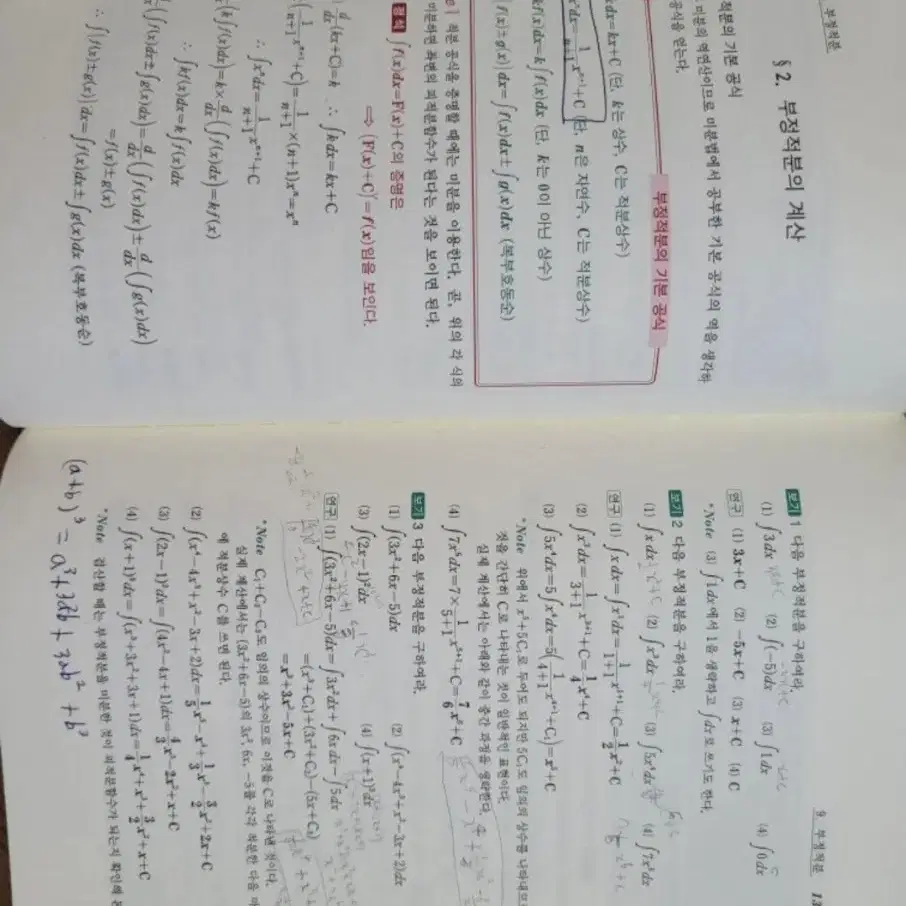 부정적분
§ 2. 부정적분의 계산
적분의 기본 공식
미분의 역연산이므로 미분법에서 공부한 기본 공식의 역을 생각하
공식을 얻는다.
부정적분의 기본 공식
kdx=kx+C (단, k는 상수, C는 적분상수)
xⁿdx=1/(n+1) xⁿ⁺¹+C (단, n은 자연수, C는 적분상수)
kf(x)dx=k∫f(x)dx (단, k는 0이 아닌 상수)
f(x)±g(x)}dx=∫f(x)dx±∫g(x)dx (복부호동순)
적분 공식을 증명할 때에는 미분을 이용한다. 곧, 위의 각 식의
미분하면 좌변의 피적분함수가 된다는 것을 보이면 된다.
정석 ∫f(x)dx=F(x)+C의 증명은
⟹ {F(x)+C}′=f(x)임을 보인다.
d/dx(kx+C)=k ∴ ∫kdx=kx+C
(1/(n+1) xⁿ⁺¹+C)=1/(n+1)×(n+1)xⁿ=xⁿ
∴ ∫xⁿdx=1/(n+1) xⁿ⁺¹+C
(k∫f(x)dx)=k×d/dx(∫f(x)dx)=kf(x)
∴ ∫kf(x)dx=k∫f(x)dx
(∫f(x)dx±∫g(x)dx)=d/dx(∫f(x)dx)±d/dx(∫g(x)dx)
=f(x)±g(x)
∴ ∫{f(x)±g(x)}dx=∫f(x)dx±∫g(x)dx (복부호동순)
9. 부정적분 13
보기 1 다음 부정적분을 구하여라.
(1) ∫3dx (2) ∫(-5)dx (3) ∫1dx (4) ∫0dx
연구 (1) 3x+C (2) -5x+C (3) x+C (4) C
*Note (3) ∫1dx에서 1을 생략하고 ∫dx로 쓰기도 한다.
보기 2 다음 부정적분을 구하여라.
(1) ∫xdx (2) ∫x³dx (3) ∫5x⁴dx (4) ∫7x⁵dx
연구 (1) ∫xdx=∫x¹dx=1/(1+1) x¹⁺¹+C=1/2 x²+C
(2) ∫x³dx=1/(3+1) x³⁺¹+C=1/4 x⁴+C
(3) ∫5x⁴dx=5∫x⁴dx=5(1/(4+1) x⁴⁺¹+C₁)=x⁵+C
*Note 위에서 x⁵+5C₁로 두어도 되지만 5C₁도 임의의 상수를 나타내므로
것을 간단히 C로 나타내는 것이 일반적인 표현이다.
실제 계산에서는 아래와 같이 중간 과정을 생략한다.
(4) ∫7x⁵dx=7×1/(5+1) x⁵⁺¹+C=7/6 x⁶+C
보기 3 다음 부정적분을 구하여라.
(1) ∫(3x²+6x-5)dx (2) ∫(x⁴-4x³+x²-3x+2)dx
(3) ∫(2x-1)²dx (4) ∫(x+1)³dx
연구 (1) ∫(3x²+6x-5)dx=∫3x²dx+∫6xdx-∫5dx
=(x³+C₁)+(3x²+C₂)-(5x+C₃)
=x³+3x²-5x+C
*Note C₁+C₂-C₃도 임의의 상수이므로 이것을 C로 나타낸 것이다.
실제 계산에서는 (3x²+6x-5)의 3x², 6x, -5를 각각 적분한 다음 마
에 적분상수 C를 쓰면 된다.
(2) ∫(x⁴-4x³+x²-3x+2)dx=1/5 x⁵-x⁴+1/3 x³-3/2 x²+2x+C
(3) ∫(2x-1)²dx=∫(4x²-4x+1)dx=4/3 x³-2x²+x+C
(4) ∫(x+1)³dx=∫(x³+3x²+3x+1)dx=1/4 x⁴+x³+3/2 x²+x+C
*Note 검산할 때는 부정적분을 미분한 것이 피적분함수가 되는지 확인해
(a+b)³ = a³+3a²b+3ab²+b³